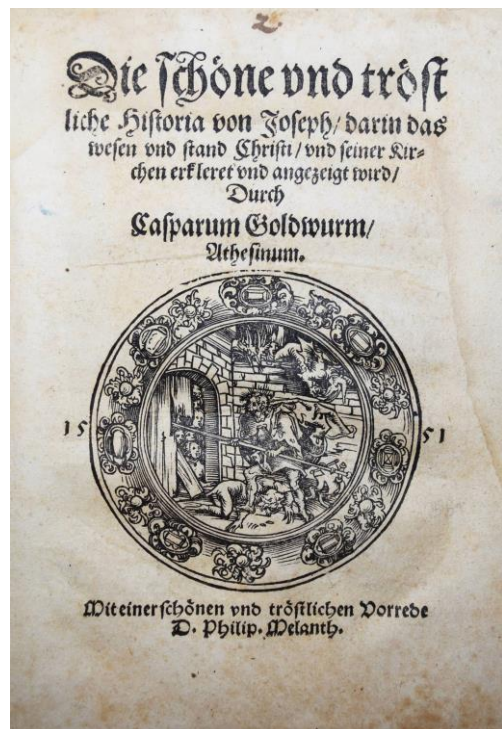 2
Die schöne vnd tröst
liche Historia von Joseph/ darin das
wesen vnd stand Christi/ vnd seiner Kir-
chen erkleret vnd angezeigt wird/
Durch
Casparum Goldwurm/
Athesinum.
15 51
Mit einer schönen vnd tröstlichen Vorrede
D. Philip. Melanth.